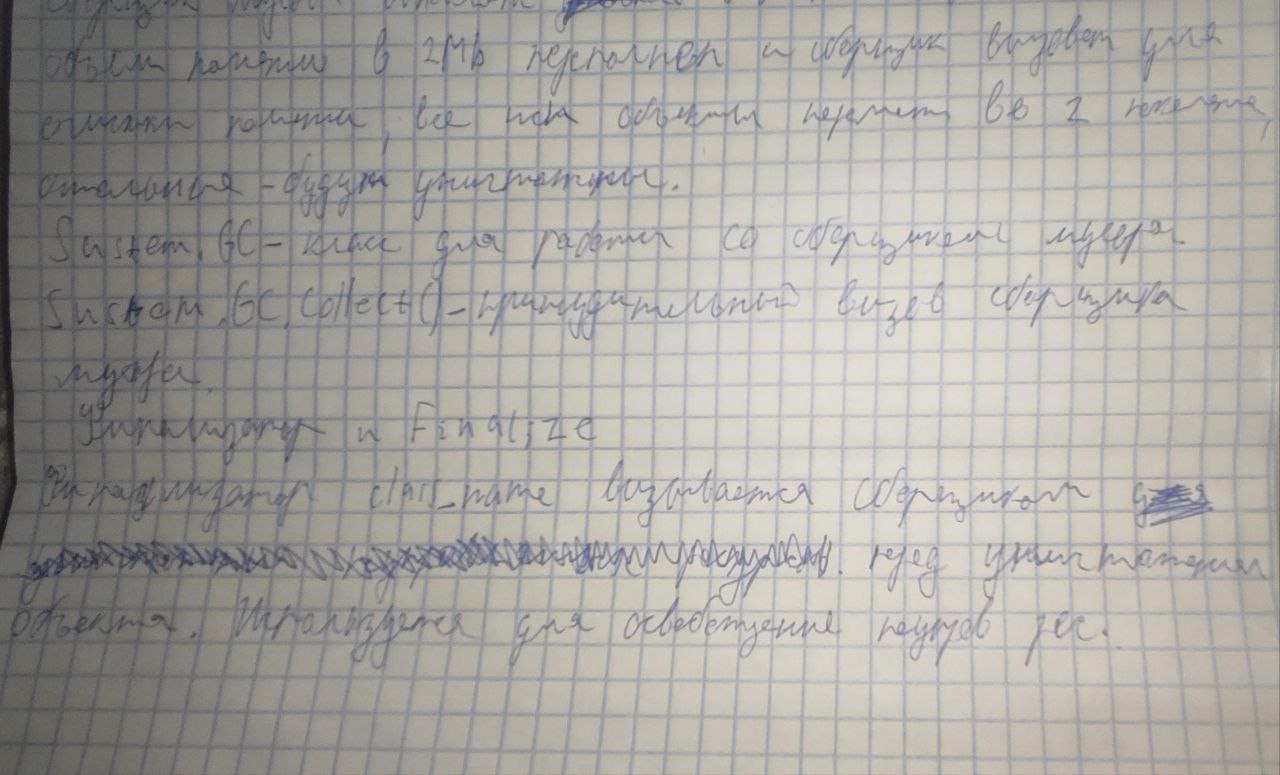 объем памяти в 2Мb переполнен и сборщик вызовет для
очистки памяти, все исп объекты перемет во 2 поколение,
остальныя - будут уничтожены.
System.GC - класс для работы со сборщиком мусора
System.GC.Collect() - принудительный вызов сборщика
мусора.
Финализатор и Finalize
Финализатор class_name вызывается сборщиком
перед уничтожением
объекта. Используется для освобождения неупр рес.